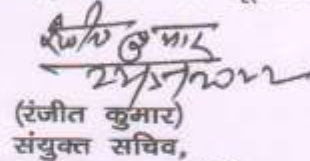 रंजीत कुमार
(रंजीत कुमार)
संयुक्त सचिव,